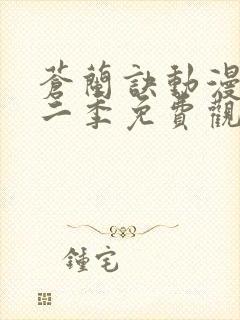 蒼蘭訣動漫
二季免費觀
鍾宅